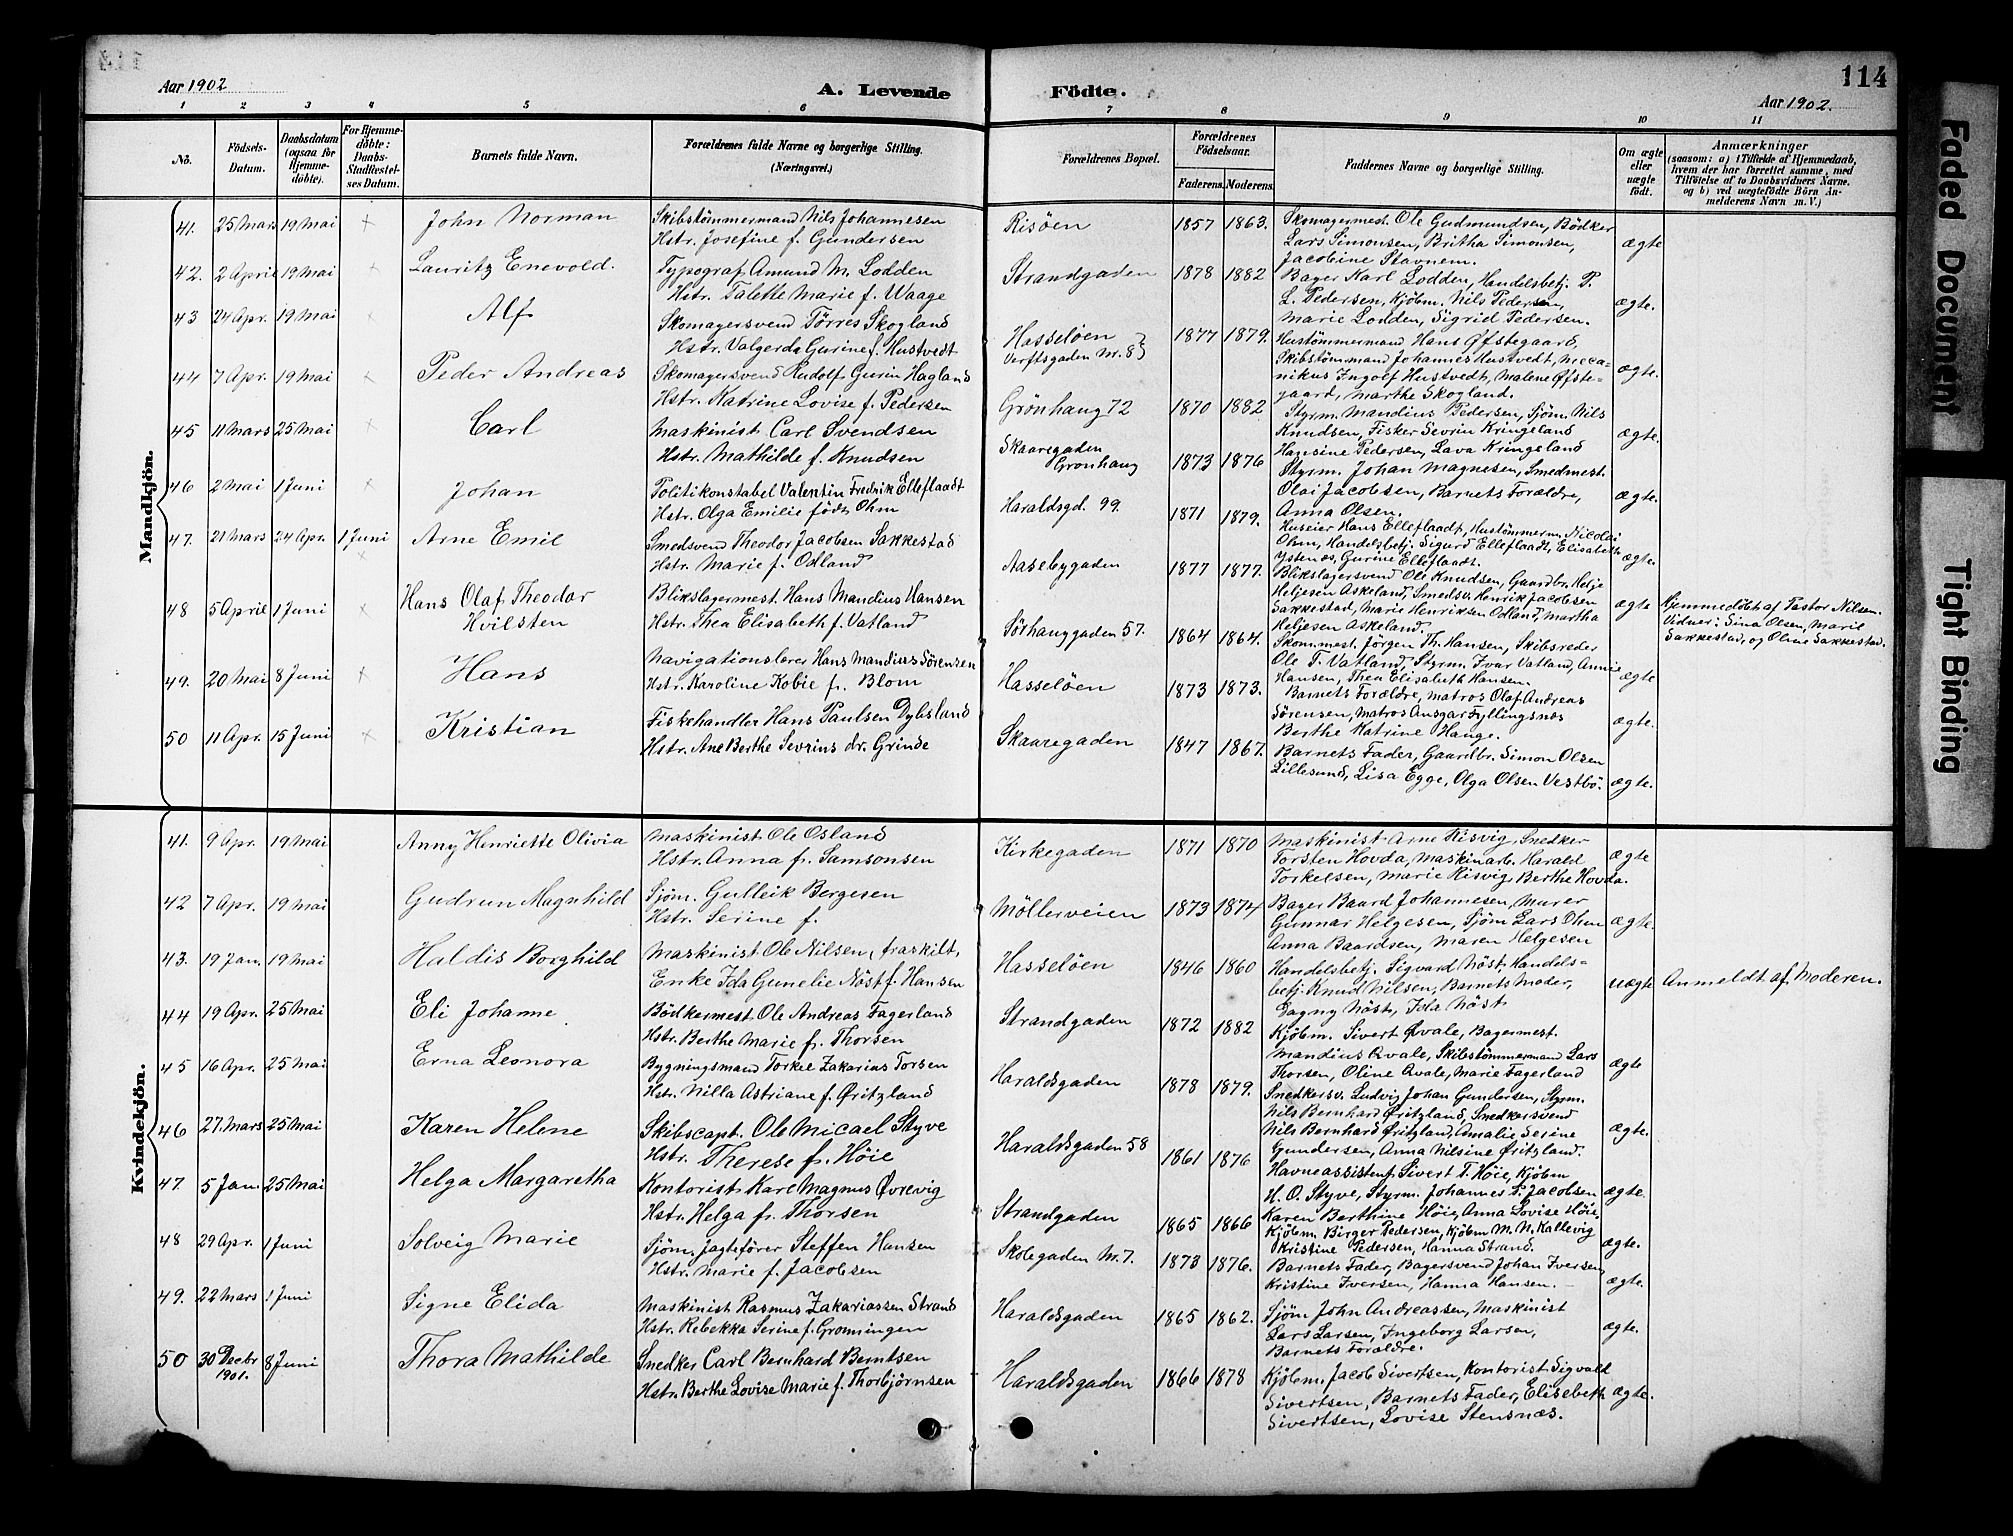 Aar 1902
A. Levende
Födte.
114
Aar 1902.
1 2 3 4 5 6 7 8 9 10 11
No.
Födsels-Datum.
Daabsdatum (ogsaa for Hjemme-döbte).
For Hjemme-döbte: Daabs-Stadfæstelses Datum.
Barnets fulde Navn.
Forældrenes fulde Navne og borgerlige Stilling. (Næringsvei.)
Forældrenes Bopæl.
Forældrenes Födselsaar.
Faderens. Moderens.
Faddernes Navne og borgerlig Stilling.
Om ægte eller uægte födt.
Anmærkninger
(saasom: a) i Tilfælde af Hjemmedaab,
hvem der har forrettet samme, med
Tilföielse af to Daabsvidners Navne,
og b) ved uægtefödte Börn An-
melderens Navn m. V.)
Mandkjön.
41. 25 Mars 19 Mai John Norman
Skibstömmermand Nils Johannesen
Hstr. Josefine f. Gundersen
Risöen 1857 1863.
Skomagermest. Ole Gudmundsen, Bödker
Lars Simonsen, Britha Simonsen,
Jacobine Stavnem.
ægte
42. 2 April 19 Mai Lauritz Enevold.
Typograf Amund M. Lodden
Hstr. Talette Marie f. Waage
Strandgaden 1878 1882
Bager Karl Lodden, Handelsbetj. P.
L. Pedersen, Kjöbm. Nils Pedersen,
Marie Lodden, Sigrid Pedersen.
ægte.
43 24 Apr. 19 Mai Alf
Skomagersvend Törres Skogland
Hstr. Valgerda Gurine f. Hustvedt
Hasselöen
Verftsgaden Nr. 8 1877 1879.
Hustömmermand Hans Øfstegaard,
Skibstömmand Johannes Hustvedt, meca-
nikus Ingolf Hustvedt, Malene Øfste-
gaard, Marthe Skogland.
ægte.
44 7 Apr. 19 Mai Peder Andreas
Skomagersvend Rudolf Gurin Hagland
Hstr. Katrine Lovise f. Pedersen
Grönhaug 72 1870 1882
Styrm. Mandius Pedersen, Sjöm. Nils
Knudsen, Fisker Sevrin Kringeland
Hansine Pedersen, Lava Kringeland
ægte.
45 11 Mars 25 Mai Carl
Maskinist Carl Svendsen
Hstr. Mathilde f. Knudsen
Skaaregaden
Grönhaug 1873 1876
Styrm. Johan Magnesen, Smedmest.
Olai Jacobsen, Barnets Forældre,
Anna Olsen.
ægte.
46 2 Mai 1 Juni Johan
Politikonstabel Valentin Fredrik Elleflaadt
Hstr. Olga Emilie född Ohm
Haraldsgd. 99. 1871 1879.
Huseier Hans Elleflaadt, Hustömmerm. Nicolai
Ohm, Handelsbetj. Sigurd Elleflaadt, Elisabeth
Ystenes, Gurine Elleflaadt.
ægte.
47. 21 Mars 24 Apr. 1 Juni Arne Emil
Smedsvend Theodor Jacobsen Sakkestad
Hstr. Marie f. Odland
Aasebygaden 1877 1877.
Blikslagersvend Ole Knudsen, Gaardbr. Helje
Heljesen Askeland, Smedsv. Henrik Jacobsen
Sakkestad, Marie Henriksen Odland, Martha
Heljesen Askeland.
ægte
Hjemmedöbt af Pastor Nilsen.
Vidner: Sina Olsen, Marie
Sakkestad, og Oline Sakkestad.
48 5 April 1 Juni Hans Olaf Theodor
Hvilsten
Blikslagermest. Hans Mandius Hansen
Hstr. Thea Elisabeth f. Vatland
Sörhauggaden 57. 1864 1864.
Skommest. Jörgen Th. Hansen, Skibsreder
Ole T. Vatland, Styrm. Ivar Vatland, Annie
Hansen, Thea Elisabeth Hansen.
ægte
49. 20 Mai 8 Juni Hans
Navigationslærer Hans Mandius Sörensen
Hstr. Karoline Kobie f. Blom
Hasselöen 1873 1873.
Barnets Forældre, Matros Olaf Andreas
Sörensen, Matros Ansgar Fyllingsnes
Berthe Katrine Hauge.
ægte.
50 11 Apr. 15 Juni Kristian
Fiskehandler Hans Paulsen Dybsland
Hstr. Ane Berthe Sevrins dr. Grinde
Skaaregaden 1847 1867.
Barnets Fader, Gaardbr. Simon Olsen
Lillesund, Lisa Egge, Olga Olsen Vestbö.
ægte.
Kvindekjön.
41. 9 Apr. 19 Mai Anny Henriette Olivia
Maskinist Ole Osland
Hstr. Anna f. Samsonsen
Kirkegaden 1871 1870
Maskinist Arne Risvig, Snedker
Torsten Hovda, Maskinarb. Harald
Torkelsen, Marie Risvig, Berthe Hovda.
ægte
42 7 Apr. 19 Mai Gudrun Magnhild
Sjöm. Gulleik Bergesen
Hstr. Serine f.
Möllerveien 1873 1874
Bager Baard Johannesen, Murer
Gunnar Helgesen, Sjöm Lars Ohm
Anna Baardsen, Maren Helgesen
ægte.
43. 19 Jan. 19 Mai Haldis Borghild
Maskinist Ole Nilsen, fraskilt,
Enke Ida Gunelie Nöst f. Hansen
Hasselöen 1846 1860
Handelsbetj. Sigvard Nöst, Handels-
betj. Knud Nilsen, Barnets Moder,
Dagny Nöst, Ida Nöst
uægte
Anmeldt af Moderen.
44 19 Apr. 25 Mai Eli Johanne
Bödkermest. Ole Andreas Fagerland
Hstr. Berthe Marie f. Thorsen
Strandgaden 1872 1882
Kjöbm. Sivert Øvale, Bagermest.
Mandius Qvale, Skibstömmermand Lars
Thorsen, Oline Qvale, Marie Fagerland
ægte
45 16 Apr. 25 Mai Erna Leonora
Bygningsmand Torkel Zakarias Torsen
Hstr. Nilla Astriane f. Øritzland
Haraldsgaden 1878 1879.
Snedkersv. Ludvig Johan Gundersen, Styrm.
Nils Bernhard Øritzland, Snedkersvend
Nils Bernhard Øritzland, Amalie Serine
Gundersen, Anna Nilsine Øritzland.
ægte.
46 27. Mars 25 Mai Karen Helene
Skibscapt. Ole Micael Styve
Hstr. Therese f. Höie
Haraldsgaden 58 1861 1876
Havneassistent Sivert T. Höie, Kjöbm
H. O. Styve, Styrm. Johannes P. Jacobsen
Karen Berthine Höie, Anna Lovise Höie.
ægte.
47. 5 Jan. 25 Mai Helga Margaretha
Kontorist Karl Magnus Øvrevig
Hstr. Helga f. Thorsen
Strandgaden 1865 1866
Kjöbm. Birger Pedersen, Kjöbm. M. N. Kallevig
Kristine Pedersen, Hanna Strand.
ægte.
48 29 Apr. 1 Juni Solveig Marie
Sjöm. Jagtefører Steffen Hansen
Hstr. Marie f. Jacobsen
Skolegaden Nr. 7. 1873 1876.
Barnets Fader, Bagersvend Johan Iversen,
Kristine Iversen, Hanna Hansen.
ægte.
49. 22 Mars 1 Juni Signe Elida
Maskinist Rasmus Zakariassen Strand
Hstr. Rebekka Serine f. Gronningen
Haraldsgaden 1865 1862.
Sjöm John Andreassen, Maskinist
Lars Larsen, Ingeborg Larsen,
Barnets Forældre.
ægte.
50 30 Decbr 1901. 8 Juni Thora Mathilde
Snedker Carl Bernhard Berntsen
Hstr. Berthe Lovise Marie f. Thorbjörnsen
Haraldsgaden 1866 1878
Kjöbm. Jacob Sivertsen, Kontorist Sigvald
Sivertsen, Barnets Fader, Elisebeth
Sivertsen, Lovise Stensnæs.
ægte.
Faded Document
Tight Binding